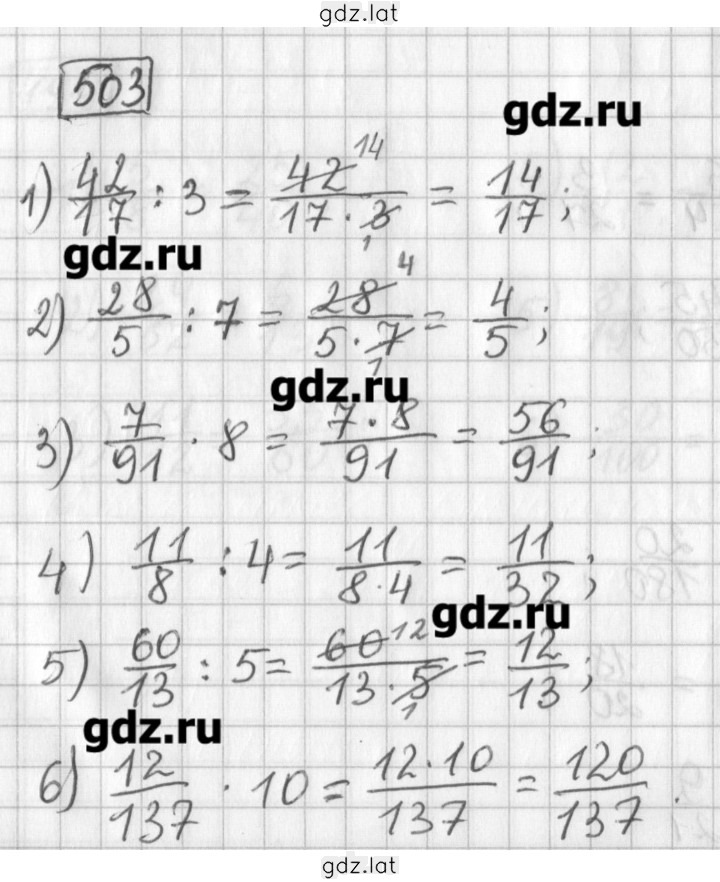 gdz.lat
503
gdz.ru
1) 42/17 : 3 = 42/(17 · 3) = 14/17; 14 1
gdz.ru
2) 28/5 : 7 = 28/(5 · 7) = 4/5; 4 1
gdz.ru
3) 7/91 · 8 = 7·8/91 = 56/91;
4) 11/8 : 4 = 11/(8·4) = 11/32;
gdz.ru
5) 60/13 : 5 = 60/(13 · 5) = 12/13; 12 1
gdz.ru
6) 12/137 · 10 = 12·10/137 = 120/137.
gdz.lat